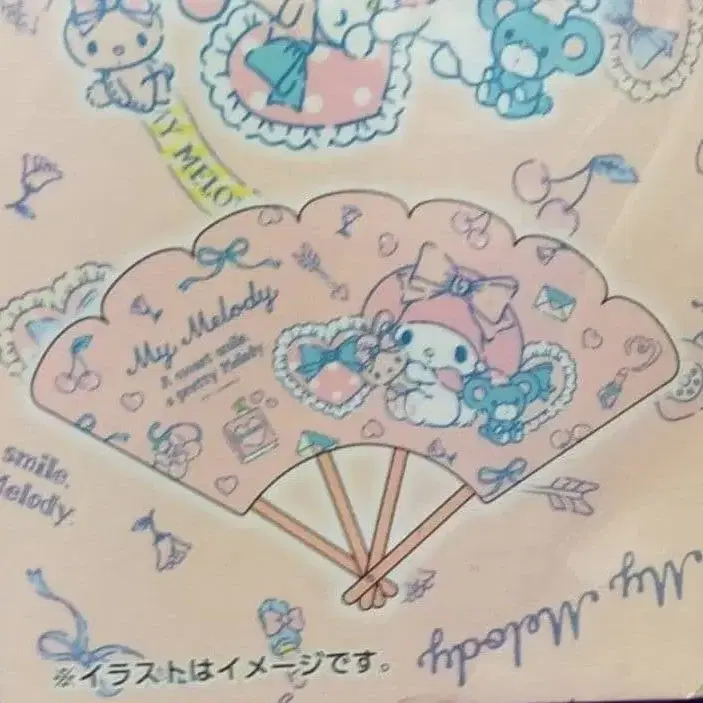 MY MELO
My Melody
A sweet smile
a pretty Melody
smile,
Melody
My Melody
※イラストはイメージです。